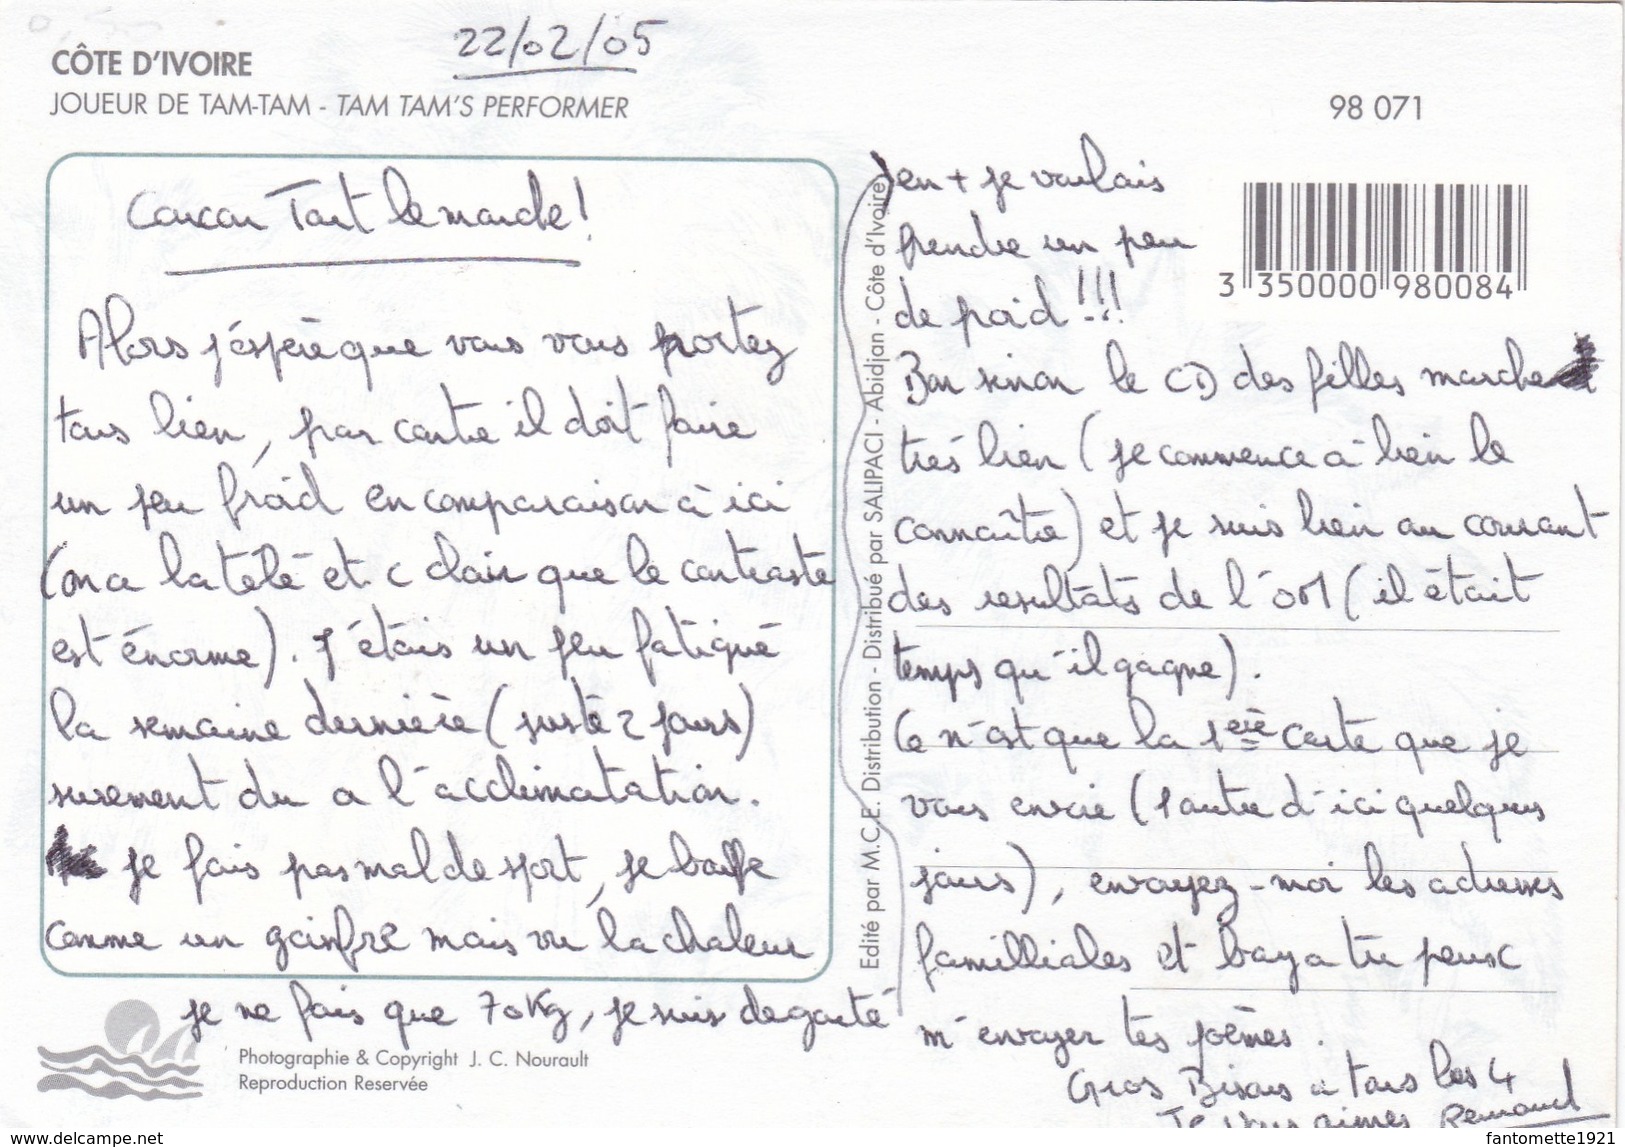 22/02/05
CÔTE D'IVOIRE
JOUEUR DE TAM-TAM - TAM TAM'S PERFORMER
98 071
3 350000 980084
Coucou Tout le monde!
Alors j'éspère que vous vous portez
tous bien, par contre il doit faire
un peu froid en comparaison à ici
(on a la télé et c clair que le contraste
est énorme). J'étais un peu fatigué
la semaine dernière (juste 2 jours)
surement du a l'acclimatation.
je fais pas mal de sport, je bouffe
comme un goinfre mais vu la chaleur
je ne fais que 70kg, je suis dégouté
en + je voulais
prendre un peu
de poid !!!
Bon sinon le CD des filles marche
très bien (je commence à bien le
connaître) et je suis bien au courant
des resultats de l'OM (il était
temps qu'il gagne).
Ce n'est que la 1ère carte que je
vous envoie (1 autre d'ici quelques
jours), envoyez-moi les adresses
familliales et baya tu peux
m'envoyer tes poèmes.
Gros Bisous a tous les 4
Je vous aimes Renaud
Edité par M.C.E. Distribution - Distribué par SALIPACI - Abidjan - Côte d'Ivoire
Photographie & Copyright J. C. Nourault
Reproduction Reservée
www.delcampe.net
fantomette1921